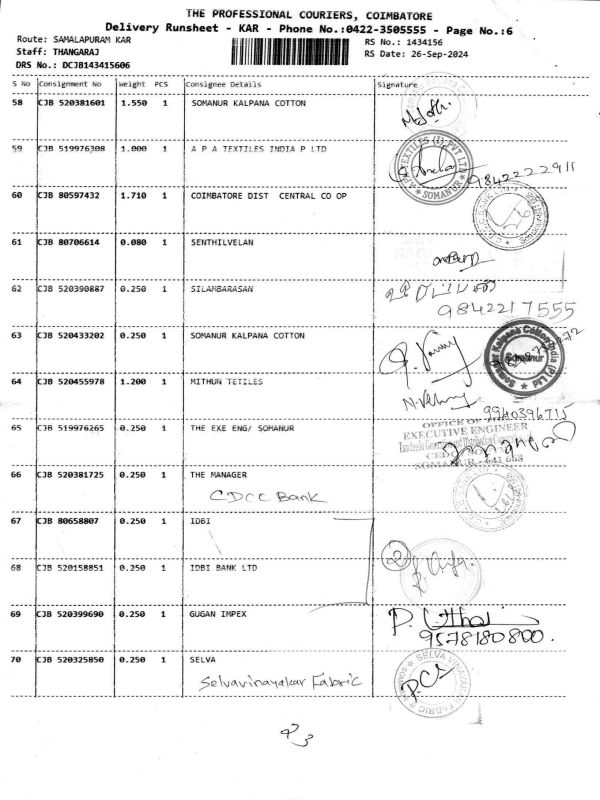 THE PROFESSIONAL COURIERS, COIMBATORE
Delivery Runsheet - KAR - Phone No.:0422-3505555 - Page No.:6
Route: SAMALAPURAM KAR
RS No.: 1434156
Staff: THANGARAJ
RS Date: 26-Sep-2024
DRS No.: DCJB143415606
S No Consignment No Weight PCS Consignee Details Signature
58 CJB 520381601 1.550 1 SOMANUR KALPANA COTTON
59 CJB 519976308 1.000 1 A P A TEXTILES INDIA P LTD
TEXTILES (I) PVT LTD
SOMANUR
9842222911
60 CJB 80597432 1.710 1 COIMBATORE DIST CENTRAL CO OP
61 CJB 80706614 0.080 1 SENTHILVELAN
62 CJB 520390887 0.250 1 SILAMBARASAN
9842217555
63 CJB 520433202 0.250 1 SOMANUR KALPANA COTTON
Somanur Kalpana Cotton India (P) Ltd
Somanur
64 CJB 520455978 1.200 1 MITHUN TETILES
9940396715
65 CJB 519976265 0.250 1 THE EXE ENG/ SOMANUR
OFFICE OF
EXECUTIVE ENGINEER
SOMANUR
66 CJB 520381725 0.250 1 THE MANAGER
CDCC Bank
67 CJB 80658807 0.250 1 IDBI
68 CJB 520158851 0.250 1 IDBI BANK LTD
2
69 CJB 520399690 0.250 1 GUGAN IMPEX
9578180800.
70 CJB 520325850 0.250 1 SELVA
Selvavinayakar Fabric